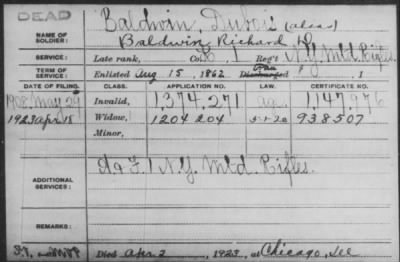 DEAD
NAME OF SOLDIER: Baldwin, Dubois (alias)
Baldwin, Richard D.
SERVICE: Late rank, Co. 1 Reg't N.Y. Mtd. Rifles
TERM OF SERVICE: Enlisted Aug 15, 1862 Discharged , 1
DATE OF FILING. CLASS. APPLICATION NO. LAW. CERTIFICATE NO.
1908 May 29 Invalid, 1,374,271 1,147,976
1923 Apr 18 Widow, 1204 204 5-1-20 938507
Minor,
ADDITIONAL SERVICES: F 1 N.Y. Mtd. Rifles.
REMARKS:
Died Apr 2, 1923, at Chicago, Ill